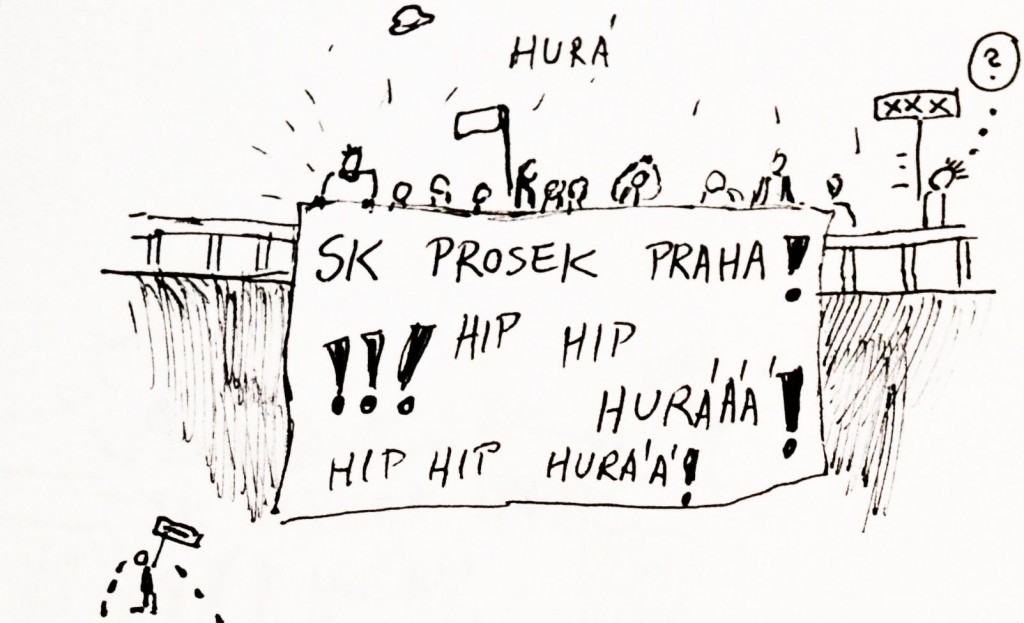 HURÁ
?
XXX
SK PROSEK PRAHA!
!!! HIP HIP
HURÁÁÁ!
HIP HIP HURÁÁ!